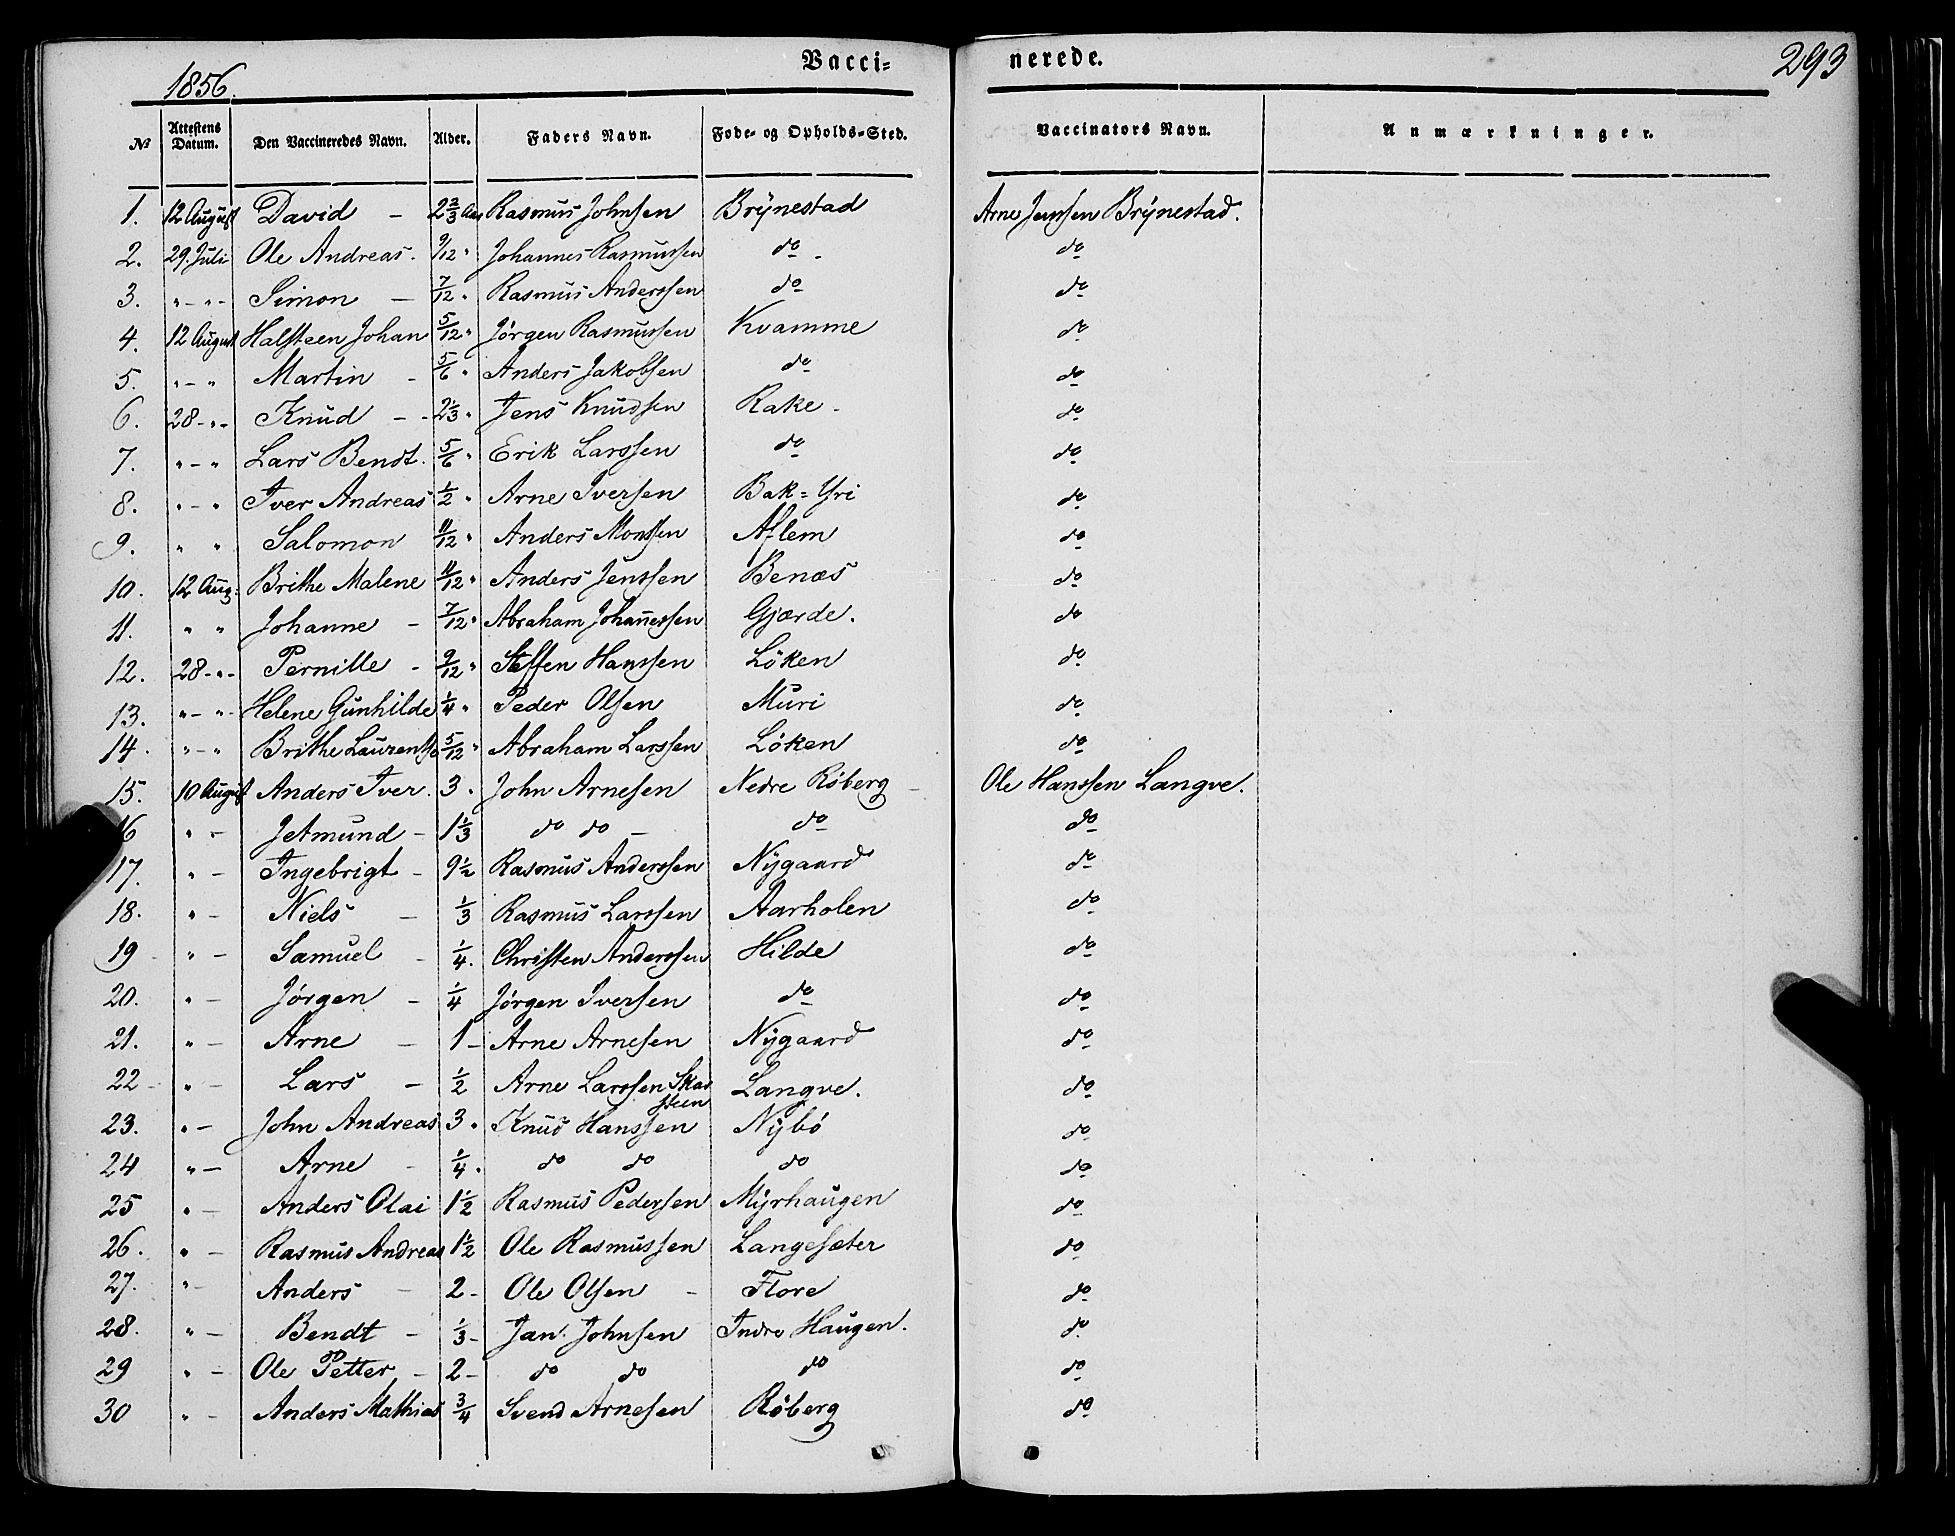 1856.
Vacci=
nerede.
293
№ Attestens Datum. Den Vaccineredes Navn. Alder. Faders Navn. Føde- og Opholds-Sted. Vaccinators Navn. Anmærkninger.
1. 12 August David - 2 2/3 Aar Rasmus Johnsen Brÿnestad Arne Jenssen Brÿnestad.
2. 29 Juli Ole Andreas. 9/12 " Johannes Rasmussen do - do
3. " - " - Simon - 7/12 " Rasmus Anderssen do do
4. 12 August Halsteen Johan 5/12 " Jörgen Rasmussen Kvamme do
5. " - " Martin - 5/6 " Anders Jakobsen do do
6. 28 - " - Knud - - 2 1/3 " Jens Knudsen Rake - do
7. " - " Lars Bendt. 5/6 " Erik Larssen do do
8. " - " Iver Andreas 1/2 " Arne Iversen Bak = Yri do
9. " " Salomon 11/12 " Anders Monssen Aflem do
10. 12 Aug: Brithe Malene 11/12 " Anders Jenssen Benæs do
11. " " Johanne - 7/12 " Abraham Johañessen Gjærde. do
12. 28 - " - Pernille - 9/12 " Steffen Hanssen Löken do
13. " - " - Helene Gunhilde 1/4 " Peder Olsen Muri do
14. " - " Brithe 5/12 " Abraham Larssen Löken do
15. 10 August Anders Iver. 3 " John Arnesen Nedre Röberg - Ole Hanssen Langve.
16 " - Jetmund - 1 1/3 do do - do do
17. " - Ingebrigt - 9 1/2 Rasmus Anderssen Nÿgaard do
18. " - Niels - 1/3 Rasmus Larssen Aarholen do
19 - " - Samuel - 1/4. Christen Anderssen Hilde do
20. " - Jörgen - 1/4 Jörgen Iversen do do
21. " - Arne - 1 - Arne Arnesen Nÿgaard do
22 - " - Lars - 1/2 Arne Larssen Skar Langve. do
steen
23. " - John Andreas 3 " Knud Hanssen Nÿbö do
24 " - Arne - 1/4. do do do do
25 " - Anders Olai 1 1/2 Rasmus Pedersen Mÿrhaugen do
26. " - Rasmus Andreas 1 1/2 Ole Rasmussen Langesæter do
27. " - Anders - 2 - Ole Olsen - Flore do
28. " - Bendt - 1/3 - Jan Johnsen Indre Haugen. do
29 " - Ole Petter - 2 - do do do do
30 " - Anders Mathias 3/4 Svend Arnesen Röberg do